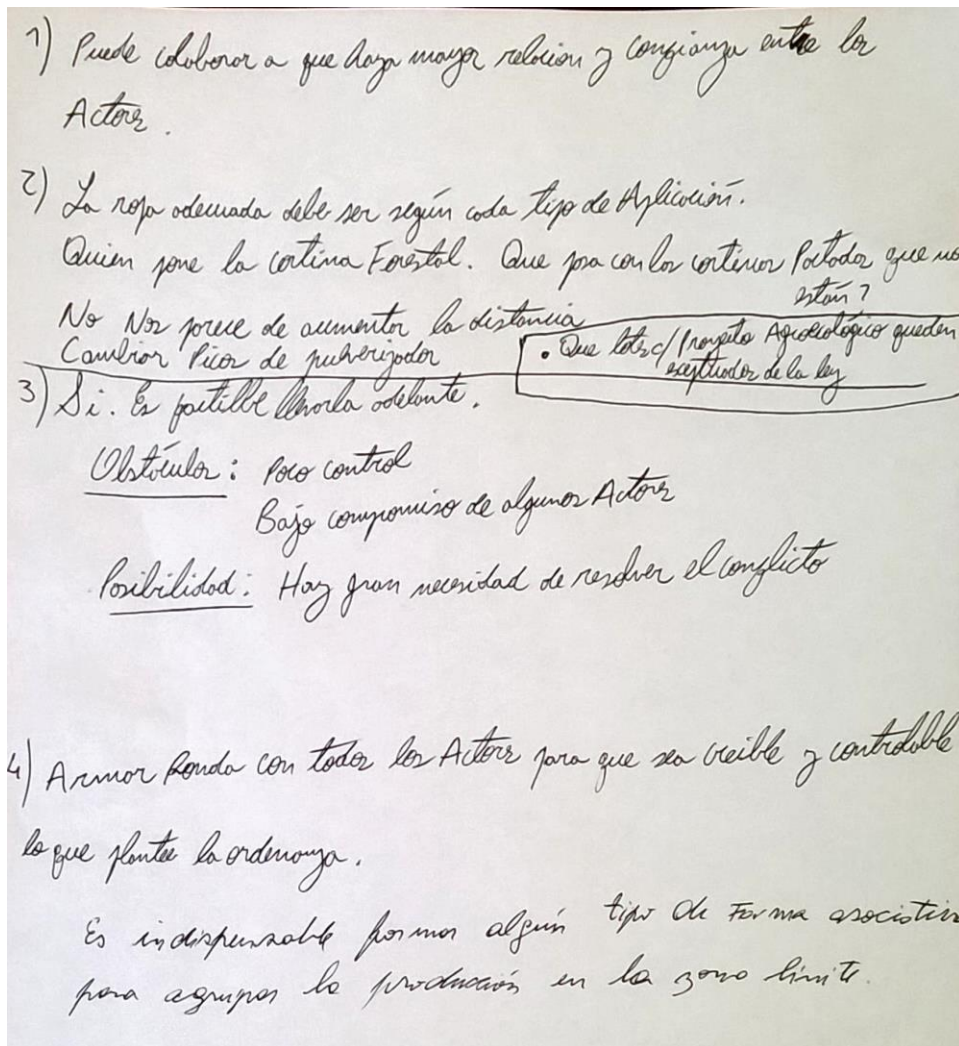 1) Puede colaborar a que haya mayor relación y confianza entre los
Actores.
2) La ropa adecuada debe ser según cada tipo de Aplicación.
Quien pone la cortina Forestal. Que pasa con los cortinas que no
están?
No Nos parece de aumentar la distancia
Cambiar Picos de pulverizador
• Que lotes c/ Proyecto Agroecológico queden
exeptuados de la ley
3) Si. Es factible llevarla adelante.
Obstáculos: Poco control
Bajo compromiso de algunos Actores
Posibilidad: Hay gran necesidad de resolver el conflicto
4) Armar Ronda con todos los Actores para que sea creible y controlable
lo que plantee la ordenanza.
Es indispensable formar algún tipo de Forma asociativa
para agrupar la producción en la zona límite.